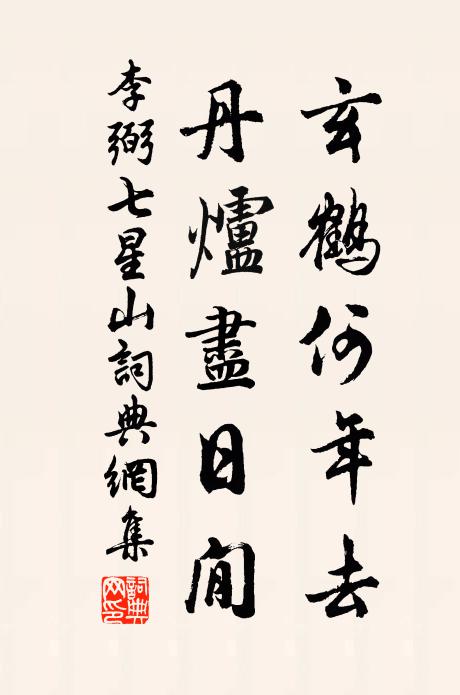 玄鶴何年去
丹爐盡日閒
李彌七星山詞典網集
詞典网印